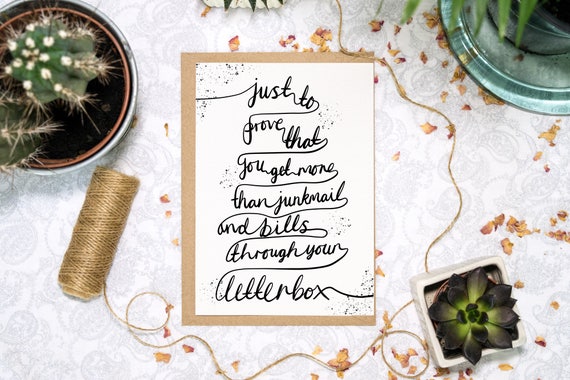 just to
prove that
you get more
than junkmail
and bills
through your
letterbox